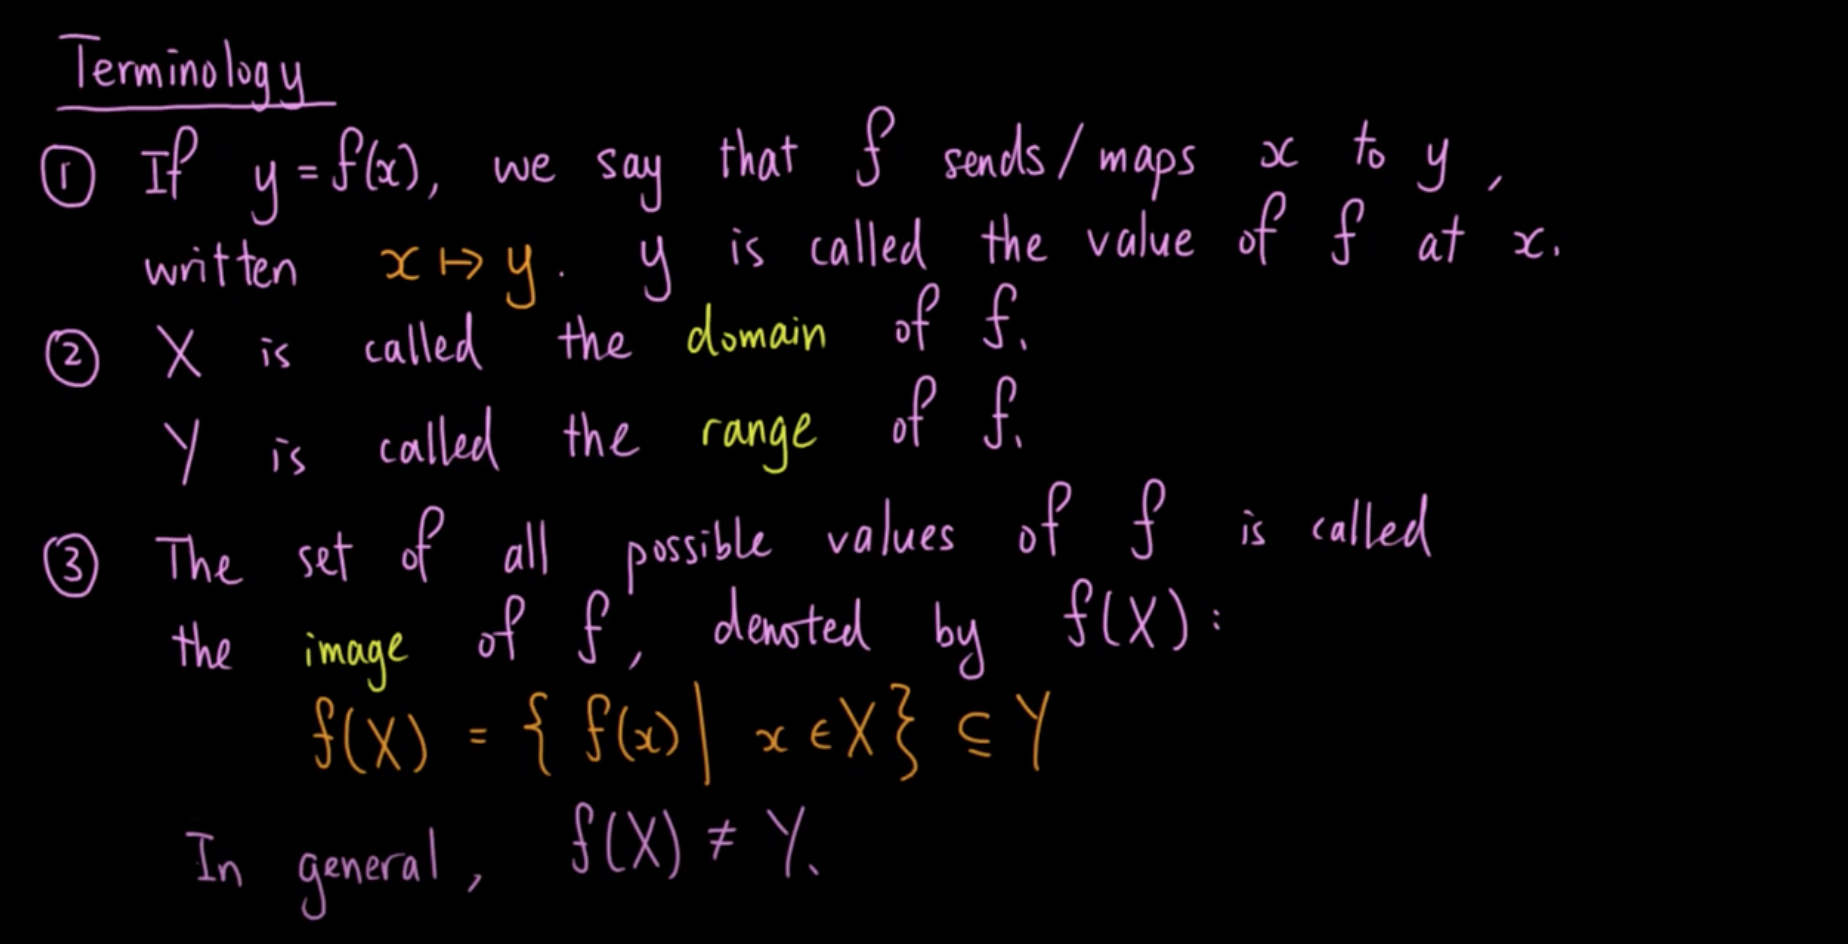 Terminology
① If y = f(x), we say that f sends/maps x to y,
written x ↦ y. y is called the value of f at x.
② X is called the domain of f.
Y is called the range of f.
③ The set of all possible values of f is called
the image of f, denoted by f(X):
f(X) = { f(x) | x ∈ X } ⊆ Y
In general, f(X) ≠ Y.